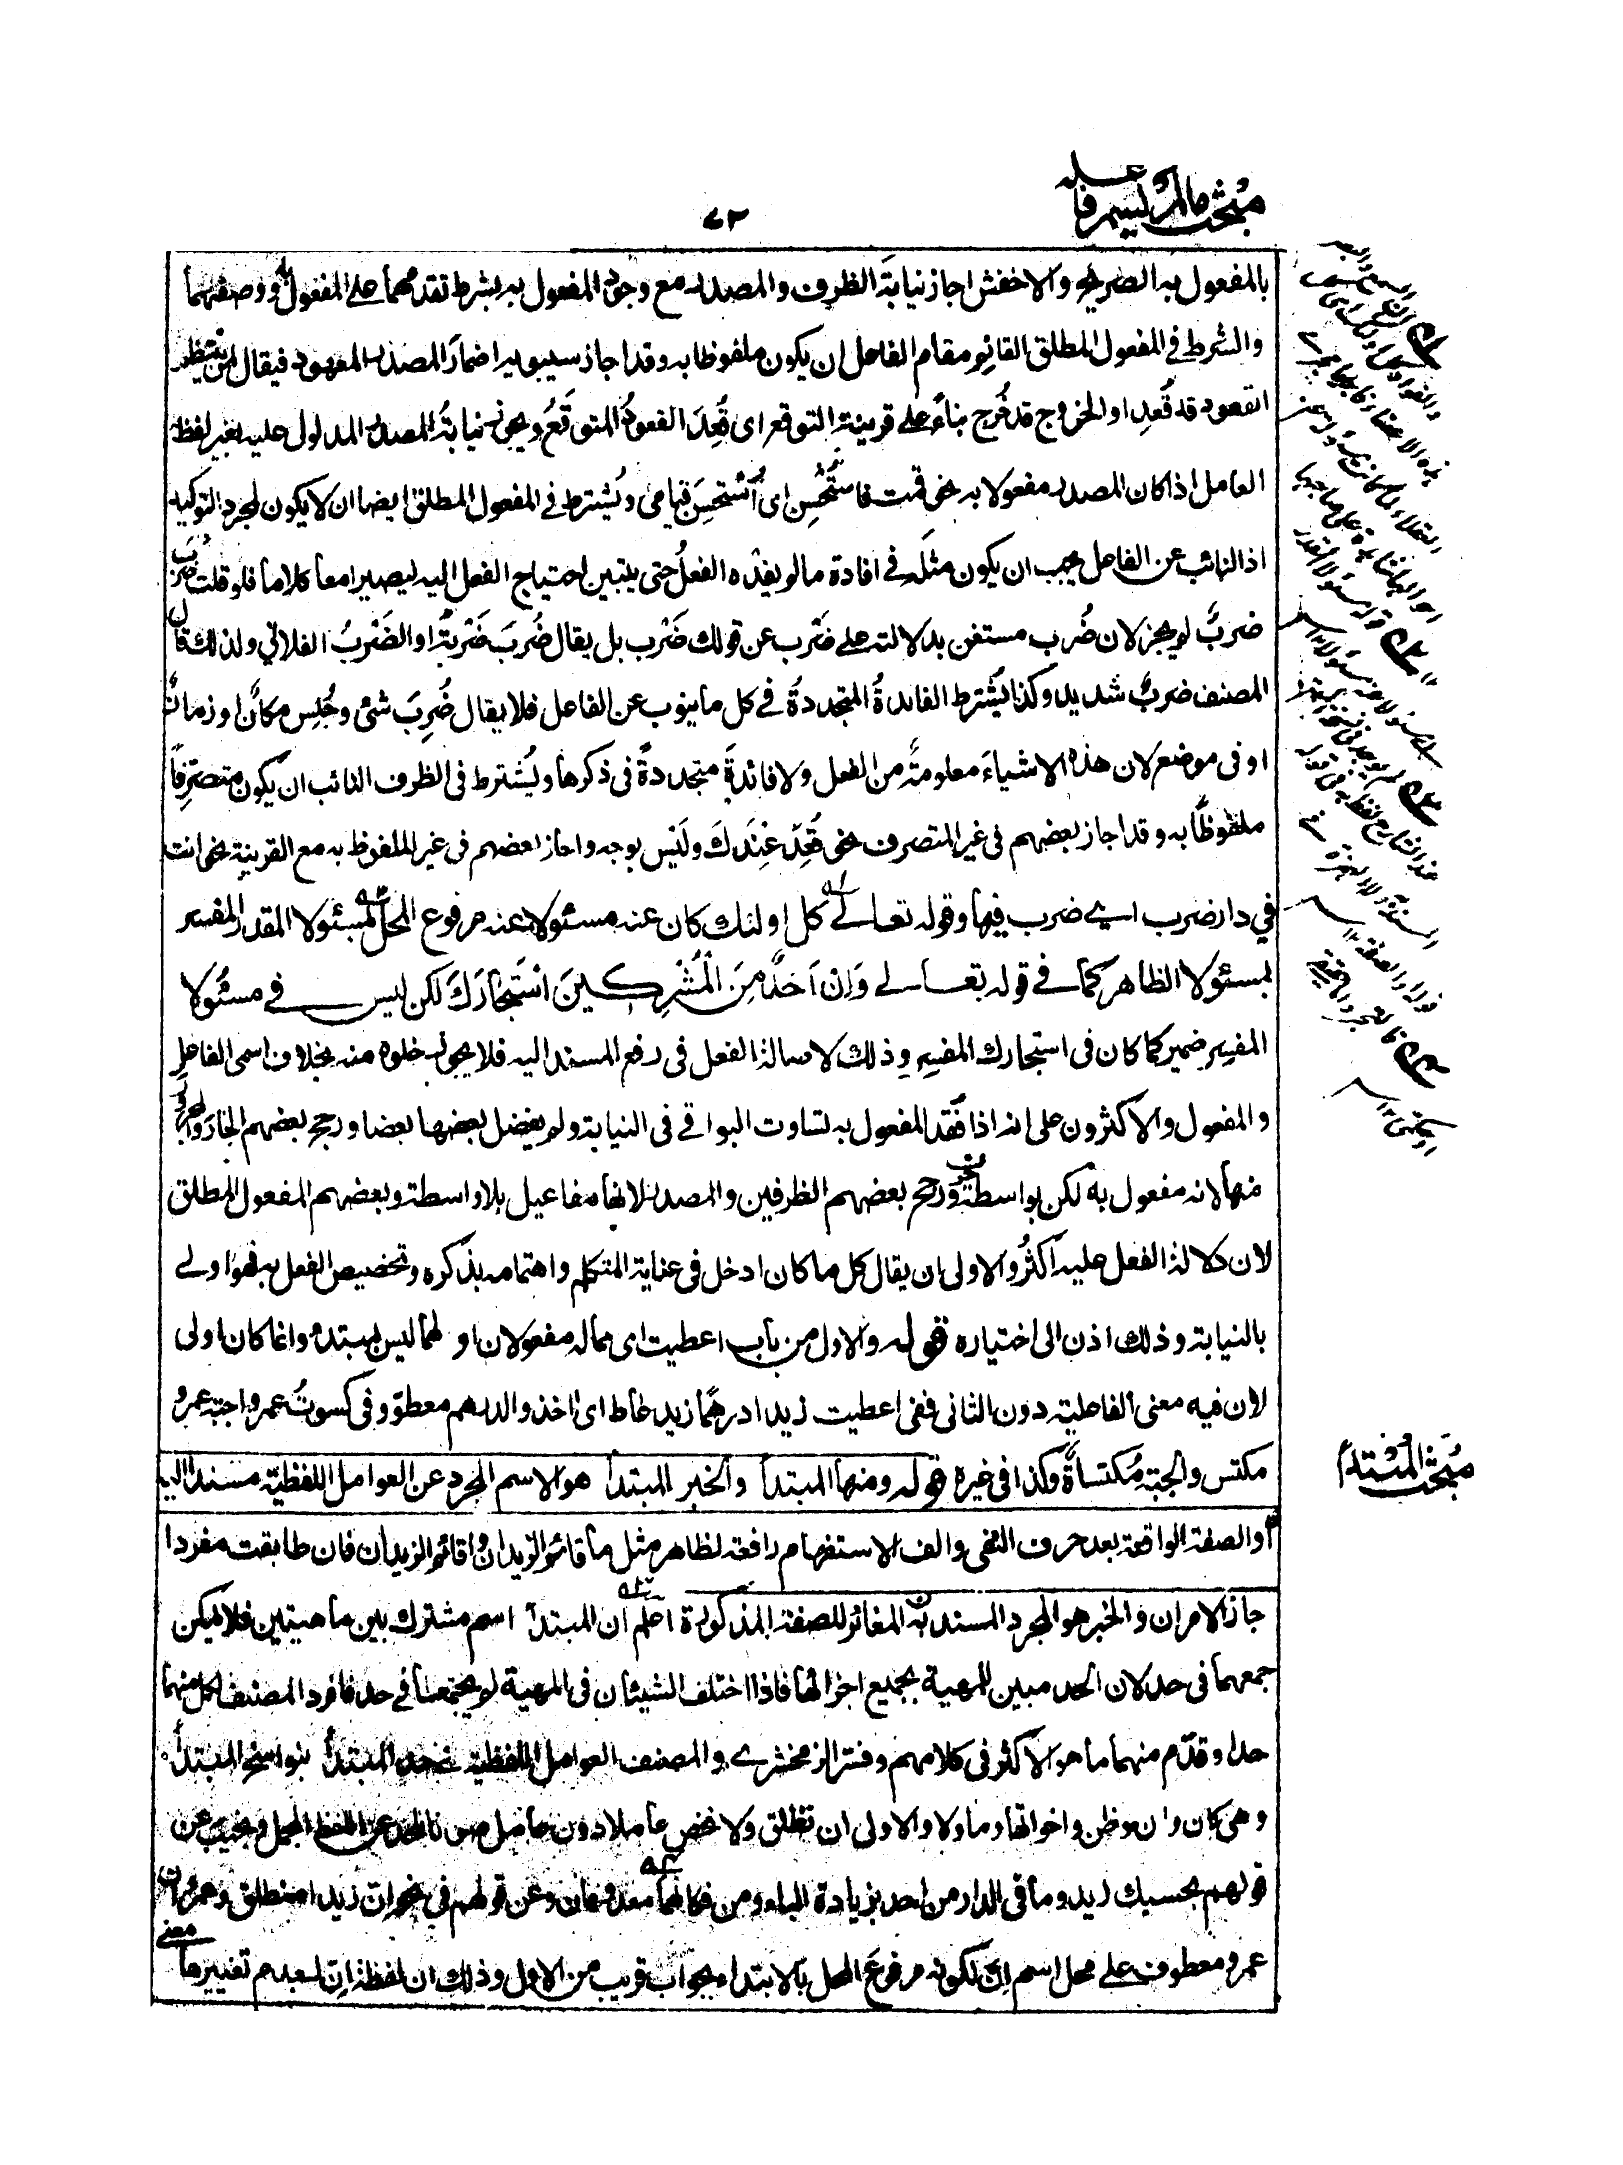 مبحث مالم يسم فاعله
٧٢
بالمفعول به الصريح والاخفش اجاز نيابة الظرف والمصدر مع وجود المفعول به بشرط تقدمهما على المفعول ووصفهما
والشرط في المفعول المطلق القائم مقام الفاعل ان يكون ملفوظا به وقد اجاز سيبويه اضمار المصدر المعهود فيقال لمن ينتظر
القعود قد قُعِد او الخروج قد خُرج بناءً على قرينة التوقع اى قُعِدَ القعودُ المتوقَّعُ ويجوز نيابةُ المصدر المدلول عليه بغير لفظ
العامل اذا كان المصدر مفعولا به نحو قمت فاستُحْسِن اى اُسْتُحسِنَ قيامى ويُشترط في المفعول المطلق ايضا ان لا يكون لمجرد التوكيد
اذ النائب عن الفاعل يجب ان يكون مثلَه في افادة مالم يفده الفعلُ حتى يتبين احتياج الفعل اليه ليصير امعا كلاما فلو قلت ضُرِبَ
ضربٌ لم يجز لان ضُرب مستغن بدلالته على ضَرْب عن قولك ضَرْب بل يقال ضُرِبَ ضَرْبةٌ او الضَرْبُ الفلانى ولذلك قال
المصنف ضربٌ شديد وكذا يُشترط الفائدةُ المتجددةُ في كل ما ينوب عن الفاعل فلا يقال ضُرِبَ شئ وجُلِس مكانٌ او زمانٌ
او فى موضع لان هذه الاشياءَ معلومةٌ من الفعل ولا فائدةَ متجددةً فى ذكرها ويُشترط فى الظرف النائب ان يكون متصرِّفًا
ملفوظًا به وقد اجاز بعضهم فى غير المتصرف نحو قُعِدَ عِنْدَكَ ولَيْس بوجه واجاز بعضهم فى غير الملفوظ به مع القرينة نحو انت
في دار ضرب اے ضرب فيها وقوله تعالے كل اولئك كان عنه مسئولا عنه مرفوع المحل بمسئولا المقدر المفسر
لمسئولا الظاهر كما فے قوله تعالے وَاِنْ اَحَدٌ مِنَ الْمُشْرِكِينَ اسْتَجَارَكَ لكن ليس فے مسئولا
المفسر ضمير كما كان فى استجارك المفسِر وذلك لاصالة الفعل فى رفع المسند اليه فلا يجوز خلوه منه بخلاف اسمى الفاعل
والمفعول والاكثرون على انه اذا فُقد المفعول به تساوت البواقے فى النيابة ولم يفضل بعضها بعضا ورجح بعضهم الجار والمجرور
منها لانه مفعول به لكن بواسطة حرف ورجح بعضهم الظرفين والمصدر لانها مفاعيل بلا واسطة وبعضهم المفعول المطلق
لان دلالة الفعل عليه اكثرُ والاولى ان يقال كل ما كان ادخل فى عناية المتكلم واهتمامه بذكره وتخصيص الفعل به فهو اولے
بالنيابة وذلك اذن الى اختياره قوله والاول من باب اعطيت اى ماله مفعولان اولهما ليس بمبتدء وانما كان اولى
لان فيه معنى الفاعلية دون الثانى ففى اعطيت زيدا درهمًا زيد عاط اى اخذ والدرهم معطوٌ وفى كسوتُ عمرو اجبة عمرو
مكتس والجبة مُكتساةٌ وكذا فى غيره قوله ومنها المبتدأ والخبر المبتدأ هو الاسم المجرد عن العوامل اللفظية مسندا اليه
او الصفة الواقعة بعد حرف النفى والف الاستفهام رافعة لظاهر مثل ما قائم الزيدان واقائم الزيدان فان طابقت مفردا
جاز الامران والخبر هو المجرد المسند به المغائر للصفة المذكورة اعلم ان المبتدأ اسم مشترك بين ماهيتين فلا يمكن
جمعهما فى حد لان الحد مبين للمهية بجميع اجزائها فاذا اختلف الشيئان فى المهية لم يجتمعا فے حد فافرد المصنف لكل منهما
حدا وقدّم منهما ما هو الاكثر فى كلامهم وفسّر الزمخشرے والمصنف العوامل اللفظية فى حد المبتدأ بنواسخ المبتدأ
وهى كان وان وظن واخواتها وما ولا والاولى ان تطلق ولا نخص عاملا دون عامل صونا للحد عن اللفظ المجمل ويجيب عن
قولهم بحسبك زيد وما فى الدار من احد بزيادة الباء ومن فكانهما معدومان وعن قولهم فى نحو ان زيدا منطلق وعمرو ان
عمرو معطوف على محل اسم ان لكونه مرفوع المحل بالابتداء بجواب قريب من الاول وذلك ان لفظة ان لعدم تغييرها معنے
مبحث المبتدأ